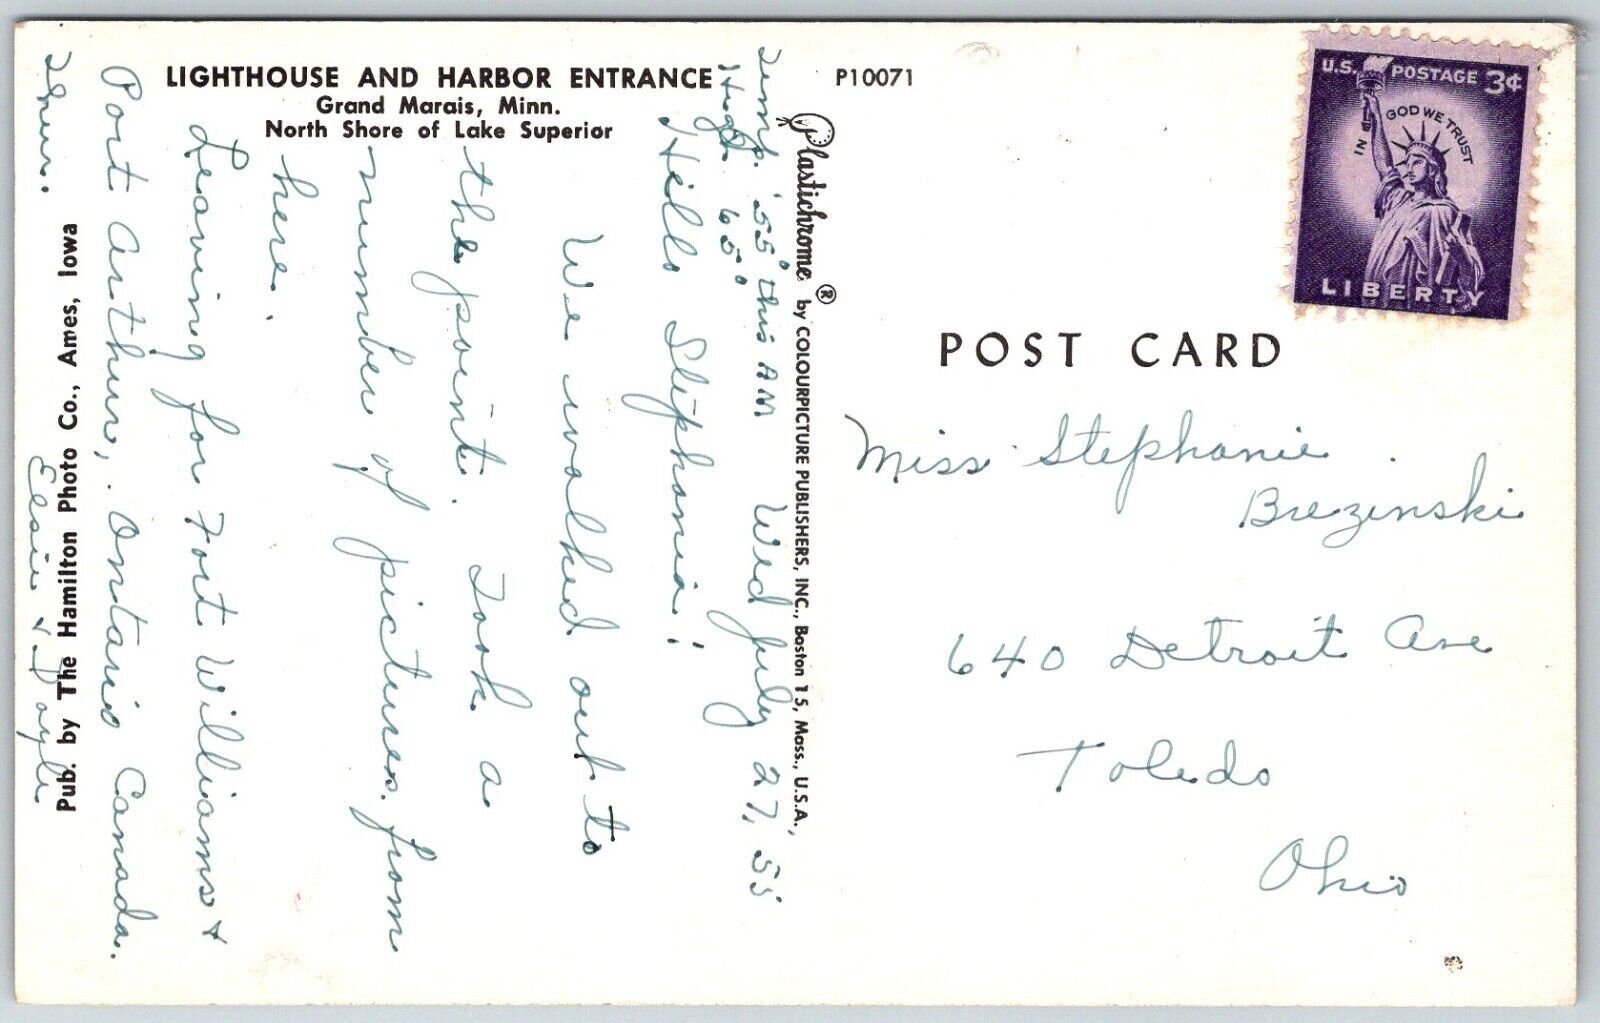 LIGHTHOUSE AND HARBOR ENTRANCE
Grand Marais, Minn.
North Shore of Lake Superior
P10071
U.S. POSTAGE 3¢
IN GOD WE TRUST
LIBERTY
POST CARD
Plastichrome ® by COLOURPICTURE PUBLISHERS, INC., Boston 15, Mass., U.S.A.
Pub. by The Hamilton Photo Co., Ames, Iowa
Temp. 55° this AM Wed July 27, 55
High 65°
Hello Stephania!
We walked out to
the point. Took a
number of pictures from
here.
Leaving for Fort Williams &
Port Arthur, Ontario Canada.
Elsie & Doyle
Miss Stephanie
Brezinski
640 Detroit Ave
Toledo
Ohio